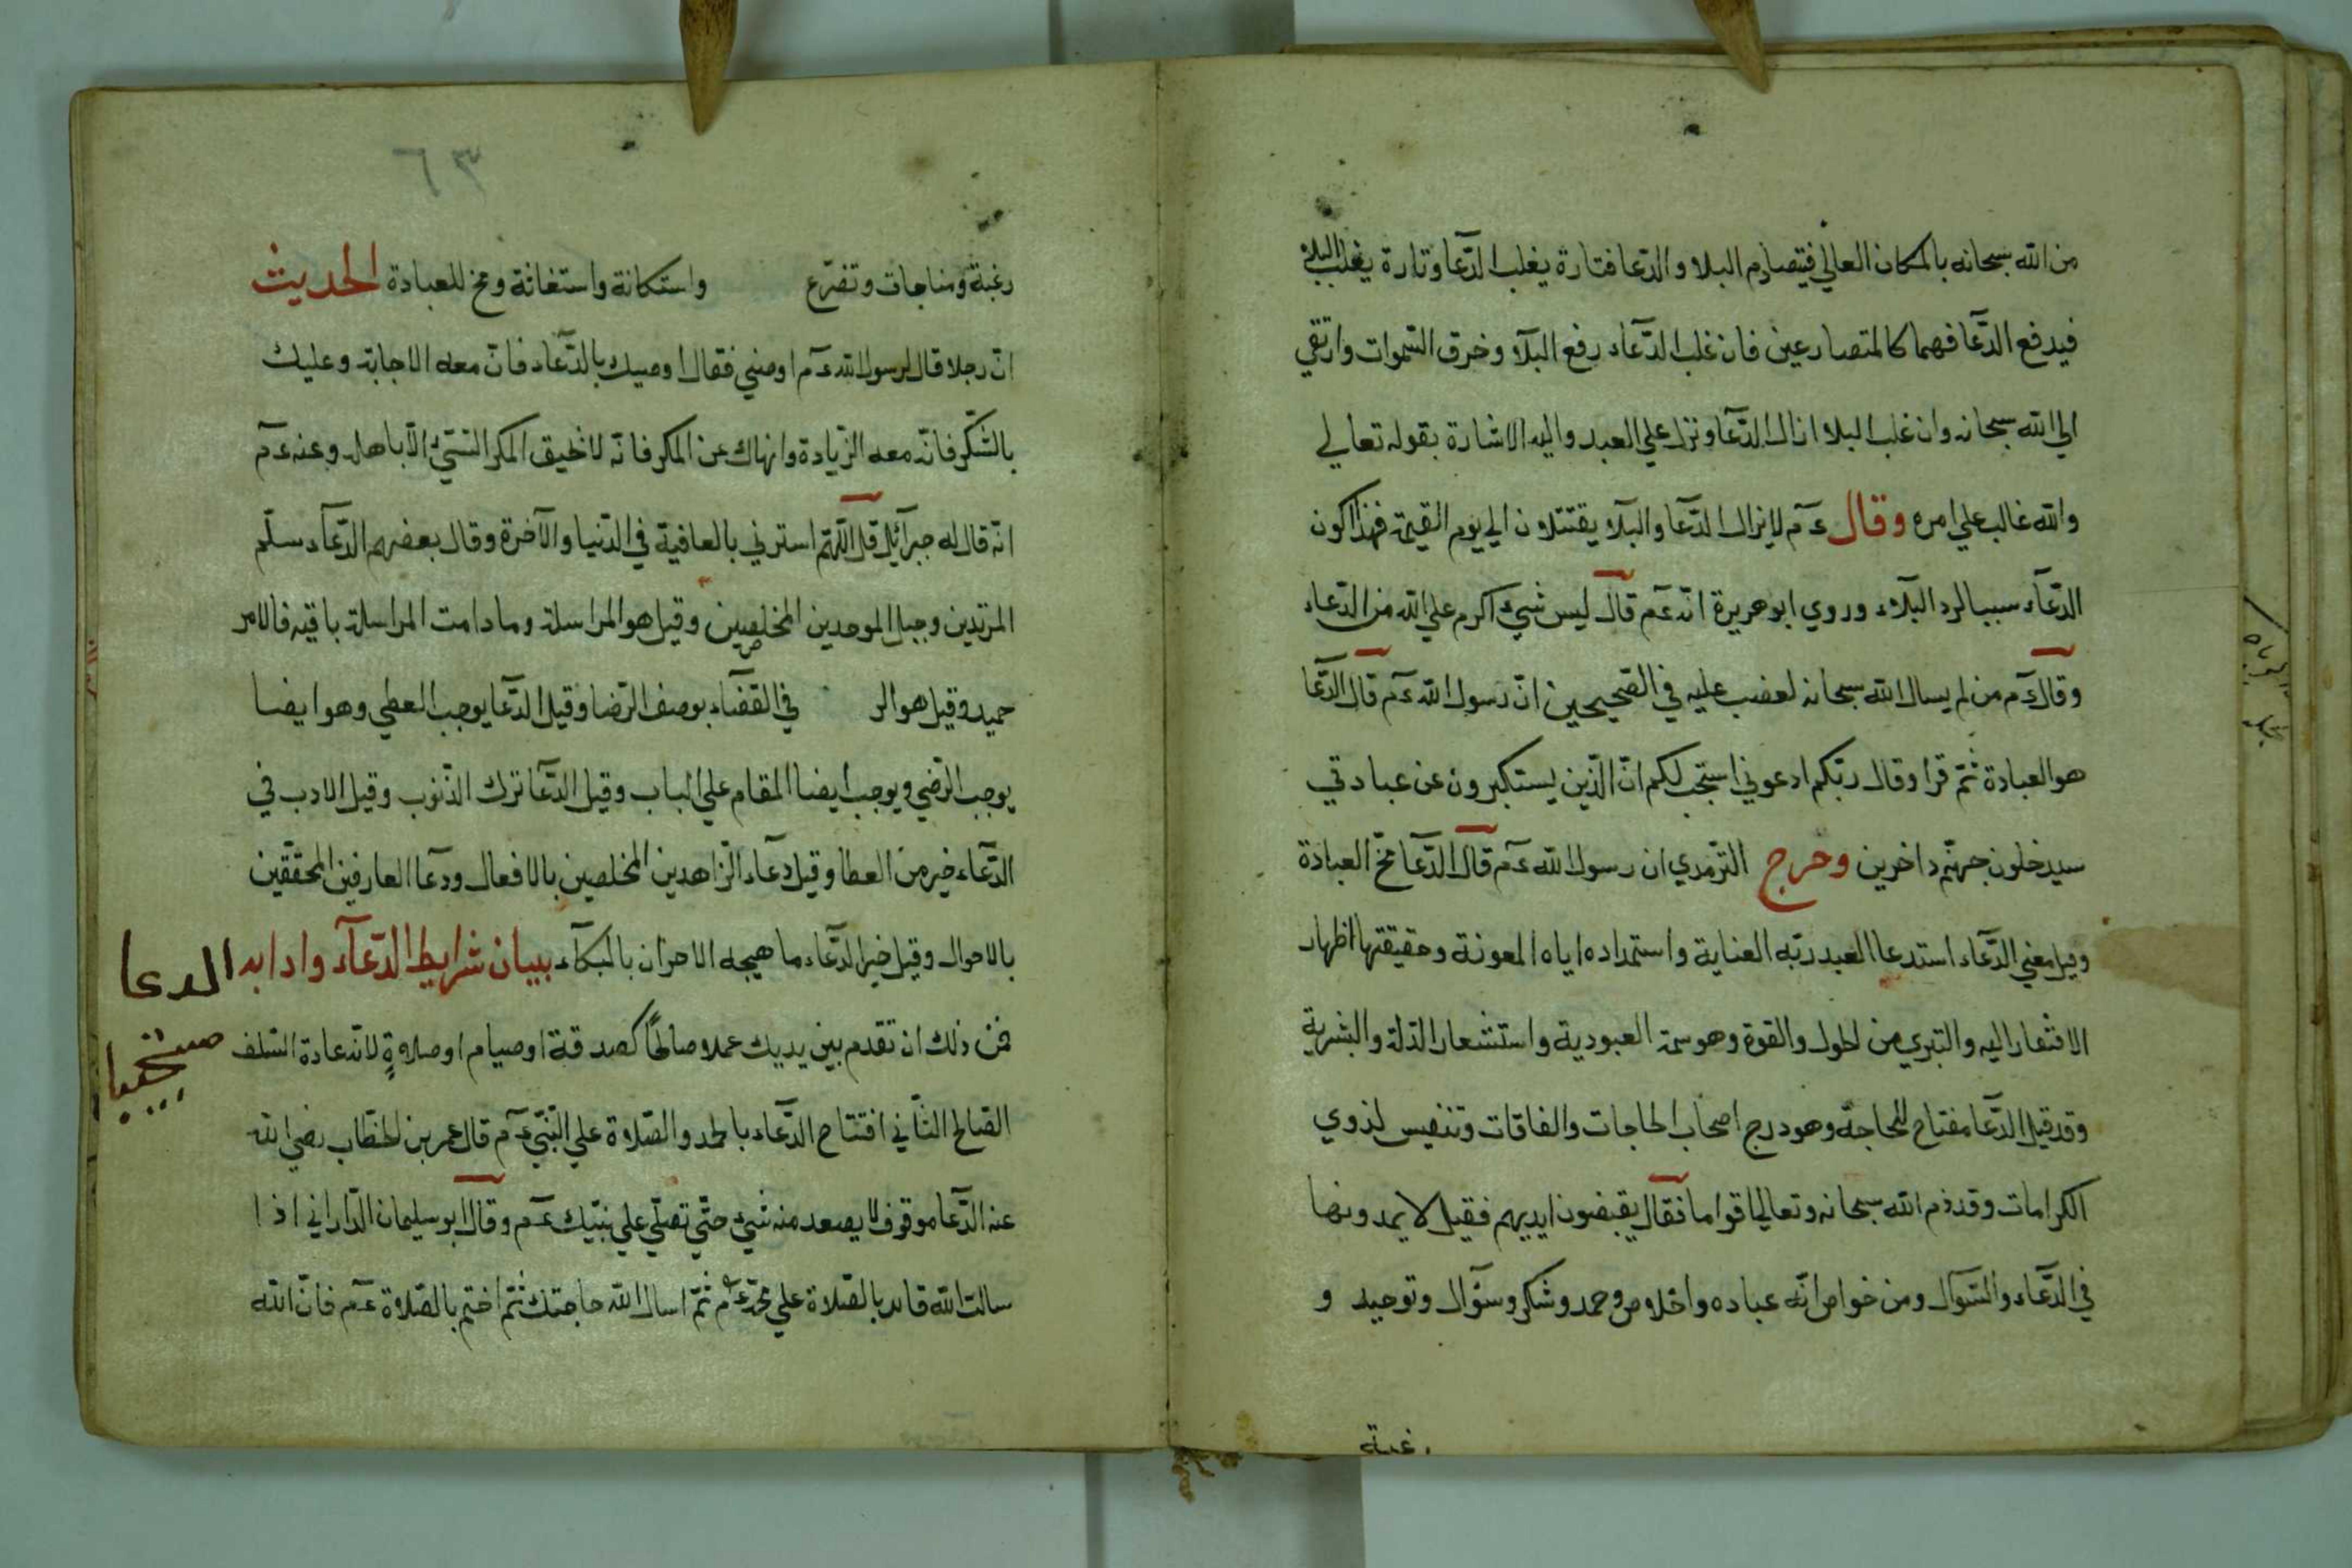 من الله سبحانه بالمكان العالي فيتصادم البلا والدّعا فتارة يغلب الدّعا وتارة يغلب البلآ
فيدفع الدّعا فهما كالمتصارعين فان غلب الدّعاء رفع البلآء وخرق السّموات وارتقي
الي الله سبحانه وان غلب البلا ازال الدّعا ونزل علي العبد واليه الاشارة بقوله تعالي
والله غالب علي امره وقال عم لايزال الدّعا والبلآء يقتتلون الي يوم القيمة فهذا كون
الدّعآء سببا لرد البلآء وروي ابو هريرة انه عم قال ليس شيء اكرم علي الله من الدّعاء
وقال عم من لم يسال الله سبحانه لعضب عليه في الصّحيحين انّ رسول الله عم قال الدّعا
هو العبادة ثمّ قرا وقال ربّكم ادعوني استجب لكم انّ الّذين يستكبرون عن عبادتي
سيدخلون جهنّم داخرين وخرج الترمدي ان رسول الله عم قال الدّعا مخّ العبادة
وقيل معني الدّعاء استدعا العبد ربّه العناية واستمداده اياه المعونة وحقيقتها اظهار
الافتقار اليه والتبري من الحول والقوة وهو سمة العبودية واستشعار الذلة والبشرية
وقد قيل الدّعا مفتاح للحاجة وهو درج اصحاب الحاجات والفاقات وتنفيس لذوي
الكرامات وقد ذم الله سبحانه وتعالي اقواما فقال يقبضون ايديهم فقيل لا يمدونها
في الدّعاء والسّوال ومن خواص انّه عباده واخلاص وحمد وشكر وسؤال وتوحيد و
رغبة
٦٣
رغبة ومناجات وتضرّع واستكانة واستغاثة ومخ للعبادة الحديث
انّ رجلا قال لرسول الله عم اوصني فقال اوصيك بالدّعاء فانّ معه الاجابة وعليك
بالشّكر فانّ معه الزّيادة وانهاك عن المكر فانّه لا يحيق المكر السّيّئ الّا باهله وعنه عم
انّه قال له جبرآئيل قل اللّهمّ استرني بالعافية في الدّنيا والآخرة وقال بعضهم الدّعآء سلّم
المرتدين وحبل الموحدين المخلصين وقيل هو المراسلة وما دامت المراسلة باقية فالامر
حميد وقيل هو الر في القضاء بوصف الرّضا وقيل الدّعا يوجب العطي وهو ايضا
يوجب الرّضي ويوجب ايضا المقام علي الباب وقيل الدّعا ترك الذّنوب وقيل الادب في
الدّعاء خير من العطا وقيل دعآء الزّاهدين المخلصين بالافعال ودعآ العارفين المحقّقين
بالاحوال وقيل خير الدّعاء ما هيجه الاحزان بالبكآء بيان شرايط الدّعآء وادابه
الدعا
فمن ذلك ان تقدم بين يديك عملا صالحًا كصدقة او صيام او صلاةٍ لانّه عادة السّلف
الصّالح الثّاني افتتاح الدّعاء بالحمد والصّلاة علي النّبيّ عم قال عمر بن الخطّاب رضي الله
عنه الدّعا موقوف لا يصعد منه شيء حتّي تصلّي علي نبيّك عم وقال ابو سليمان الدّاراني اذا
سالت الله فابد بالصّلاة علي محمّد عم ثمّ اسال الله حاجتك ثمّ اختم بالصّلاة عم فانّ الله